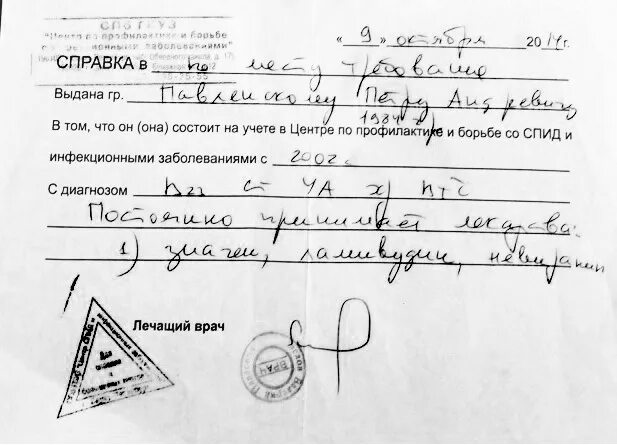 СПбГКУЗ
"Центр по профилактике и борьбе
инфекционными заболеваниями"
«9» октября 2014г.
СПРАВКА в по месту требования
Выдана гр. Павленскому Петру Андреевичу
1984 г.р.
В том, что он (она) состоит на учете в Центре по профилактике и борьбе со СПИД и
инфекционными заболеваниями с 2002г.
С диагнозом B23 ст 4А
Постоянно принимает лекарства:
1) зиаген, ламивудин, невирапин
Лечащий врач
ВРАЧ
Для